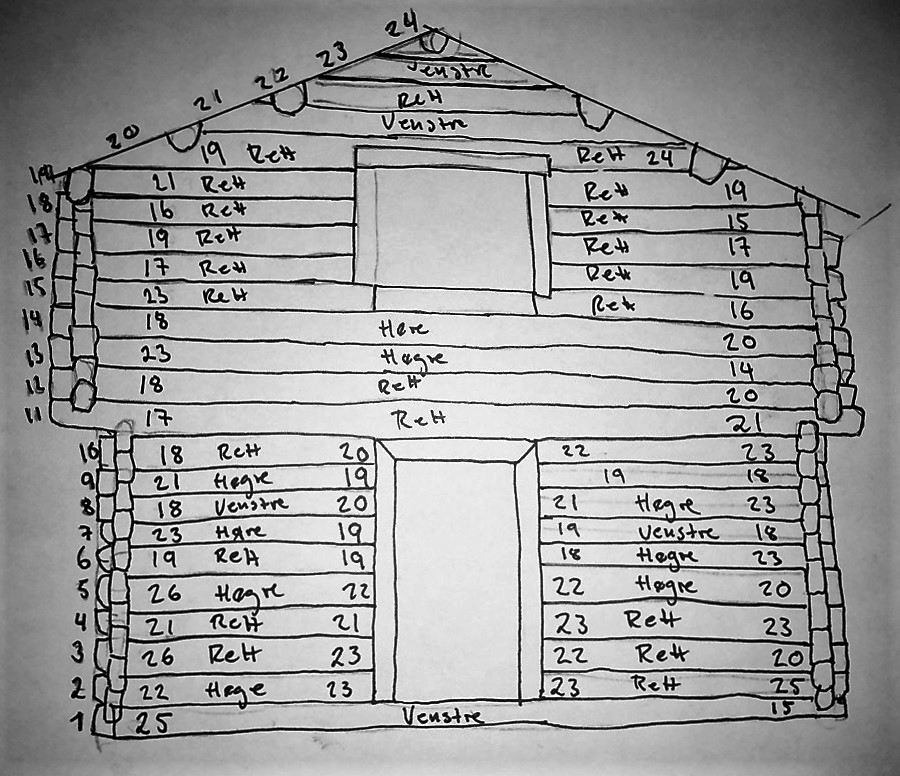 24
23
Venstre
22
Rett
21
Venstre
20
19 Rett Rett 24
19 21 Rett Rett 19
18 16 Rett Rett 15
17 19 Rett Rett 17
16 17 Rett Rett 19
15 23 Rett Rett 16
14 18 Høre 20
13 23 Høgre 14
12 18 Rett 20
11 17 Rett 21
10 18 Rett 20 22 23
9 21 Høgre 19 19 18
8 18 Venstre 20 21 Høgre 23
7 23 Høre 19 19 Venstre 18
6 19 Rett 19 18 Høgre 23
5 26 Høgre 22 22 Høgre 20
4 21 Rett 21 23 Rett 23
3 26 Rett 23 22 Rett 20
2 22 Høge 23 23 Rett 25
1 25 Venstre 15